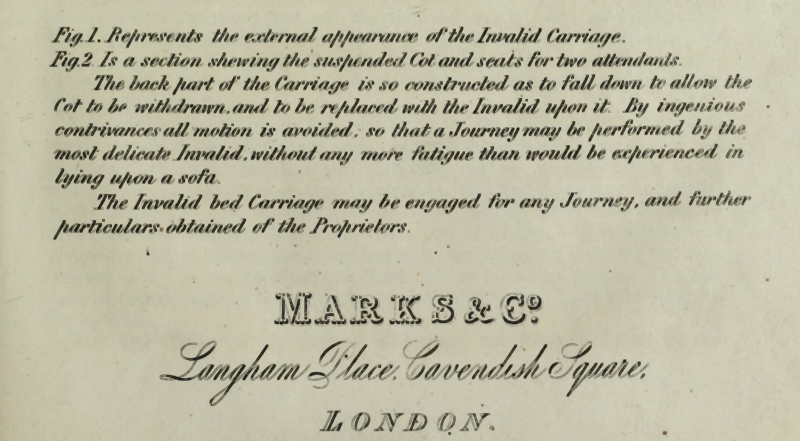 Fig. 1. Represents the external appearance of the Invalid Carriage.
Fig. 2. Is a section shewing the suspended Cot and seats for two attendants.
The back part of the Carriage is so constructed as to fall down to allow the
Cot to be withdrawn, and to be replaced with the Invalid upon it. By ingenious
contrivances all motion is avoided; so that a Journey may be performed by the
most delicate Invalid, without any more fatigue than would be experienced in
lying upon a sofa.
The Invalid bed Carriage may be engaged for any Journey, and further
particulars obtained of the Proprietors.
MARKS & Co.
Langham Place, Cavendish Square,
LONDON.